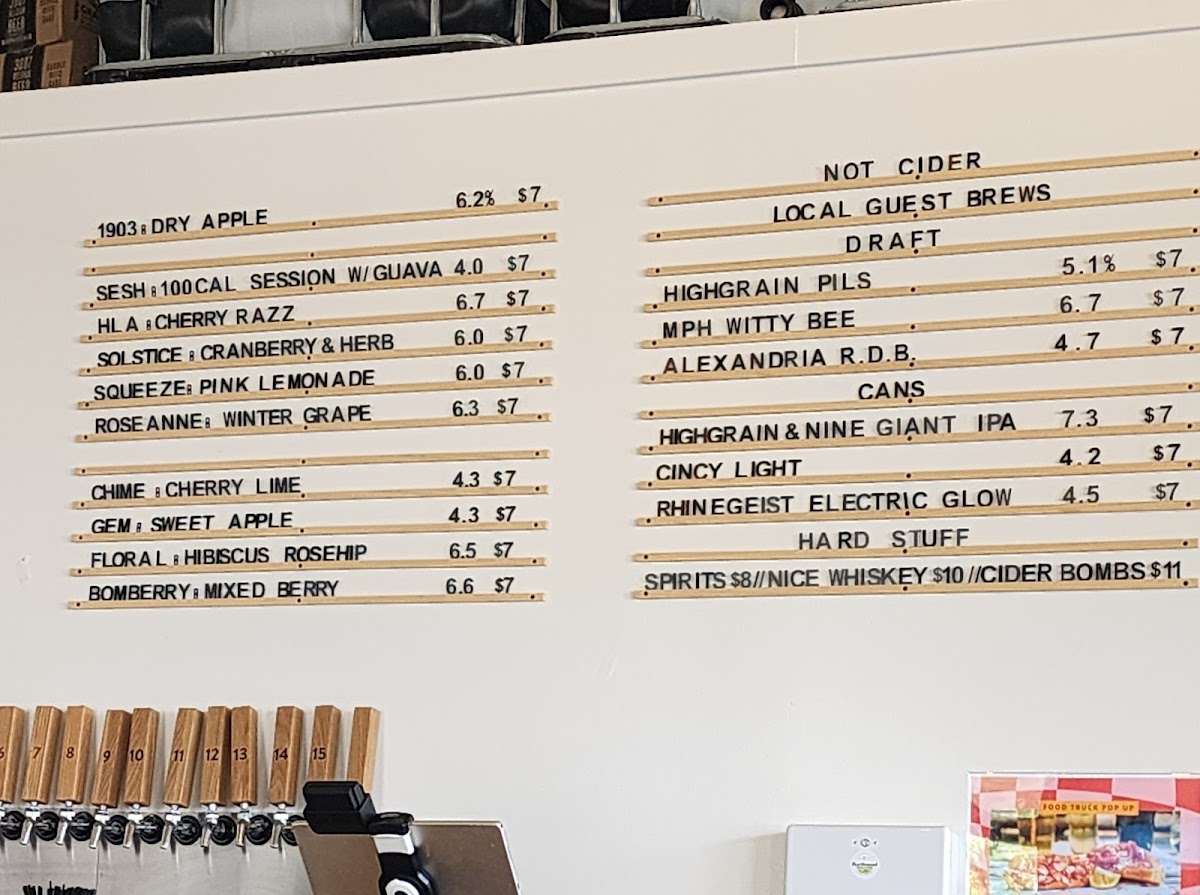 1903 8 DRY APPLE 6.2% $7
SESH 8 100CAL SESSION W/GUAVA 4.0 $7
HLA 8 CHERRY RAZZ 6.7 $7
SOLSTICE 8 CRANBERRY & HERB 6.0 $7
SQUEEZE 8 PINK LEMONADE 6.0 $7
ROSEANNE 8 WINTER GRAPE 6.3 $7
CHIME 8 CHERRY LIME 4.3 $7
GEM 8 SWEET APPLE 4.3 $7
FLORAL 8 HIBISCUS ROSEHIP 6.5 $7
BOMBERRY 8 MIXED BERRY 6.6 $7
NOT CIDER
LOCAL GUEST BREWS
DRAFT
HIGHGRAIN PILS 5.1% $7
MPH WITTY BEE 6.7 $7
ALEXANDRIA R.D.B. 4.7 $7
CANS
HIGHGRAIN & NINE GIANT IPA 7.3 $7
CINCY LIGHT 4.2 $7
RHINEGEIST ELECTRIC GLOW 4.5 $7
HARD STUFF
SPIRITS $8//NICE WHISKEY $10//CIDER BOMBS $11
6 7 8 9 10 11 12 13 14 15
FOOD TRUCK POP UP